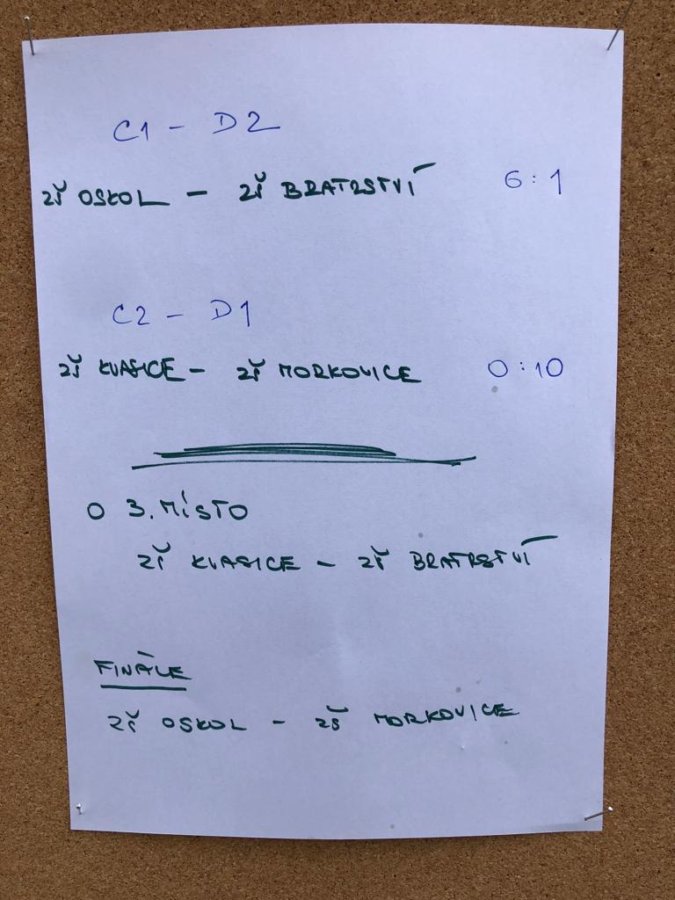 C1 - D2
ZŠ OSKOL - ZŠ BRATRSTVÍ 6:1
C2 - D1
ZŠ KVASICE - ZŠ MORKOVICE 0:10
O 3. MÍSTO
ZŠ KVASICE - ZŠ BRATRSTVÍ
FINÁLE
ZŠ OSKOL - ZŠ MORKOVICE